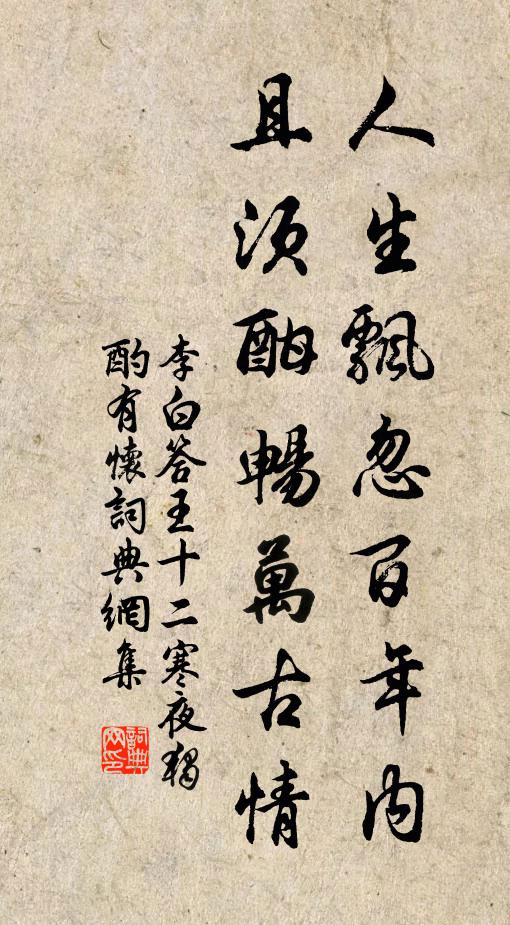 人生飄忽百年内
且須酣暢萬古情
李白答王十二寒夜獨
酌有懷詞典網集
詞典
网印